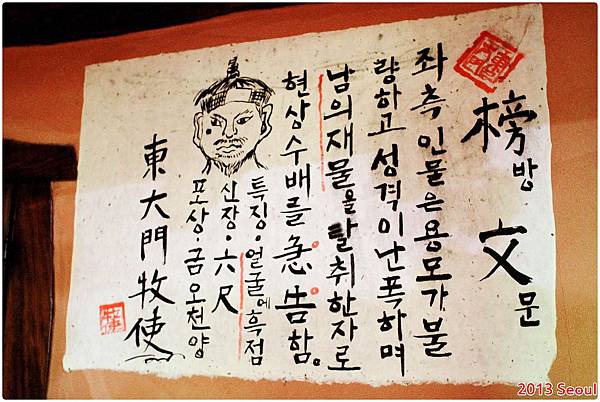 榜방 文문
좌측인물은용모가불
량하고성격이난폭하며
남의재물을탈취한자로
현상수배를急告함。
특징·얼굴에흑점
신장·六尺
포상·금오천양
東大門牧使
2013 Seoul